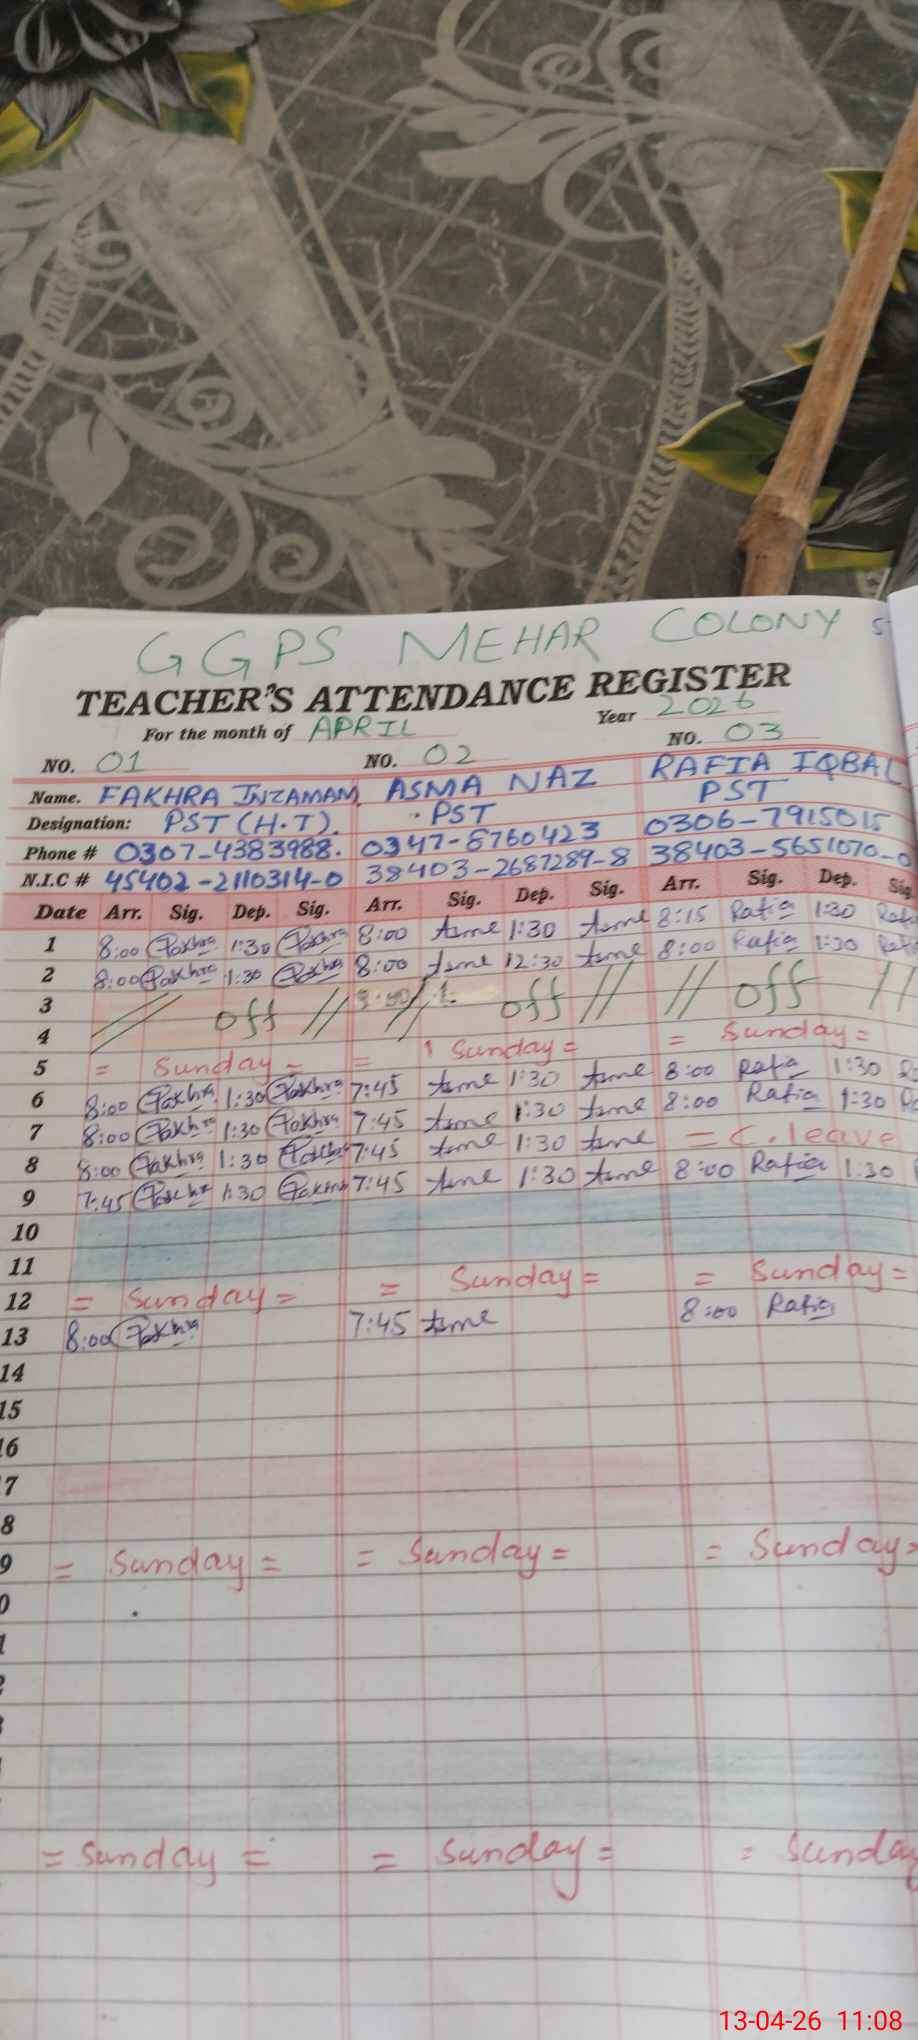 GGPS MEHAR COLONY
TEACHER'S ATTENDANCE REGISTER
For the month of APRIL Year 2026
NO. 01 NO. 02 NO. 03
Name. FAKHRA INZAMAM ASMA NAZ RAFIA IQBAL
Designation: PST (H.T). PST PST
Phone # 0307-4383988. 0347-8760423 0306-7915015
N.I.C # 45402-2110314-0 38403-2687289-8 38403-5651070-0
Date Arr. Sig. Dep. Sig. Arr. Sig. Dep. Sig. Arr. Sig. Dep. Sig
1 8:00 Fakhra 1:30 Fakhra 8:00 1:30 8:15 Rafia 1:30
2 8:00 Fakhra 1:30 Fakhra 8:00 12:30 8:00 Rafia 1:30
3 // off // // off // // off //
4
5 = Sunday = = Sunday = = Sunday =
6 8:00 Fakhra 1:30 Fakhra 7:45 1:30 8:00 Rafia 1:30
7 8:00 Fakhra 1:30 Fakhra 7:45 1:30 8:00 Rafia 1:30
8 8:00 Fakhra 1:30 Fakhra 7:45 1:30 = C. leave
9 7:45 Fakhra 1:30 Fakhra 7:45 1:30 8:00 Rafia 1:30
10
11
12 = Sunday = = Sunday = = Sunday =
13 8:00 Fakhra 7:45 8:00 Rafia
14
15
16
7
8
9 = Sunday = = Sunday = = Sunday =
0
1
2
3
= Sunday = = Sunday = = Sunday
13-04-26 11:08